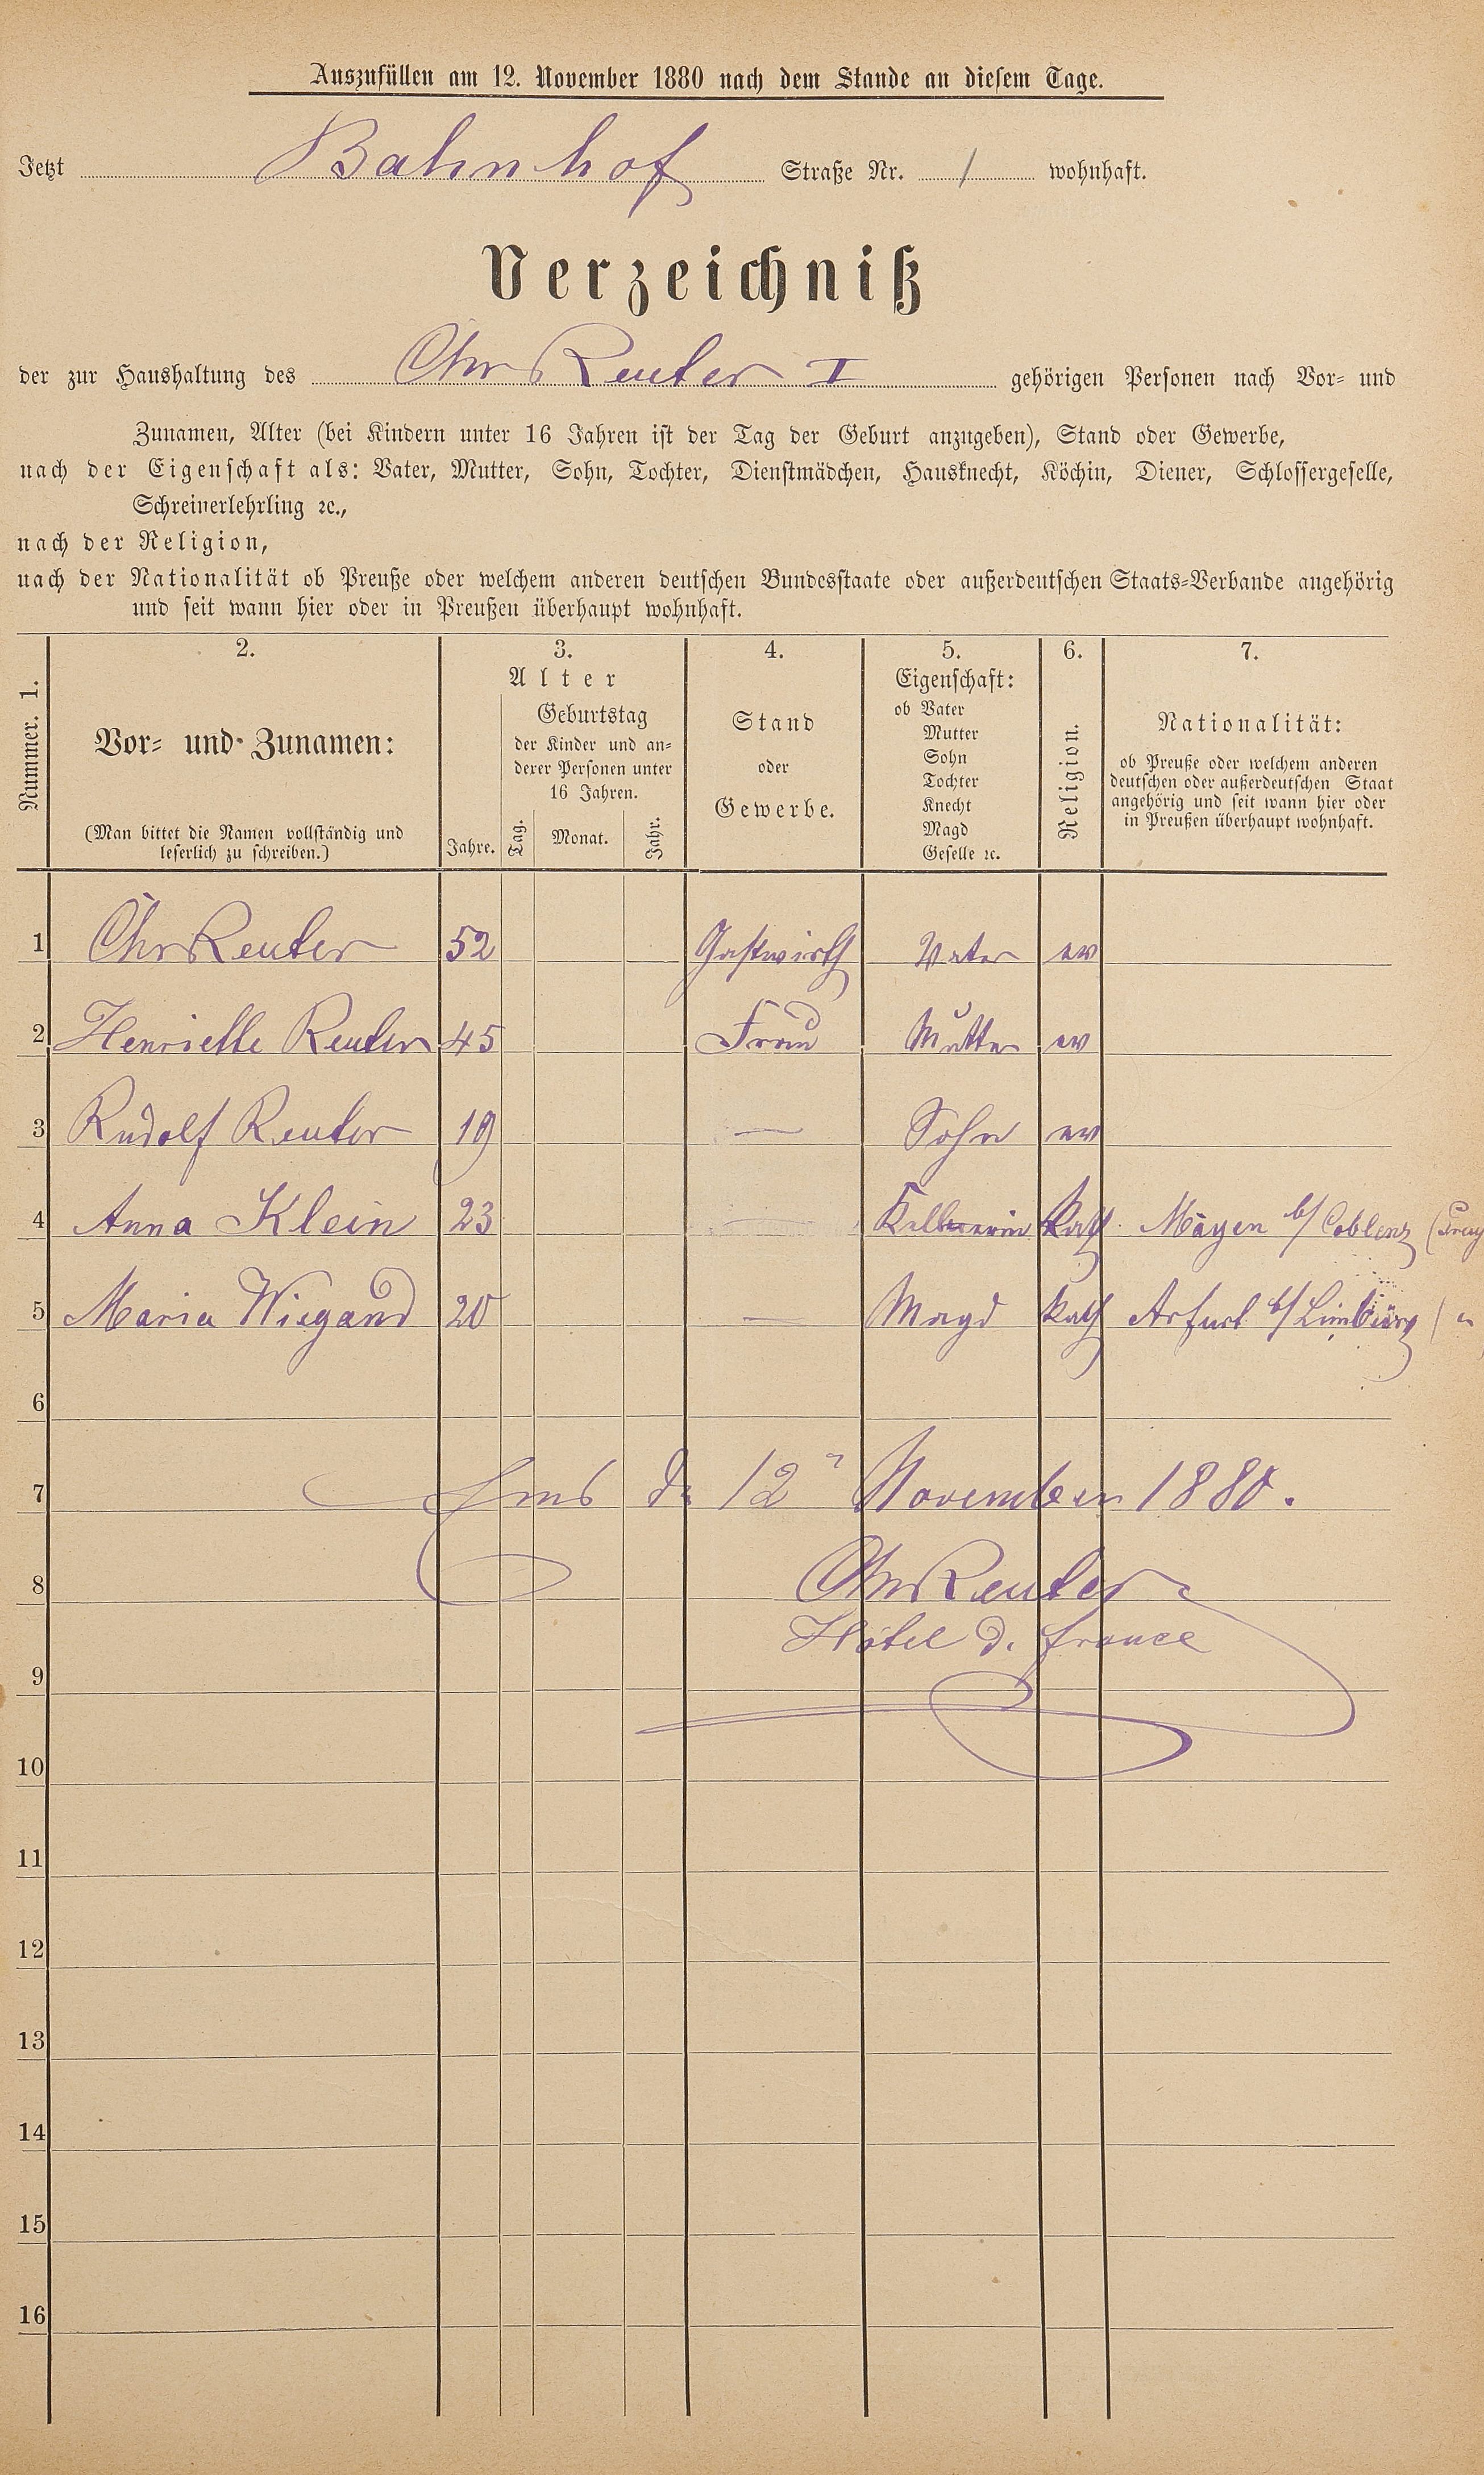 Auszufüllen am 12. November 1880 nach dem Stande an diesem Tage.
Jetzt Bahnhof Straße Nr. 1 wohnhaft.
Verzeichniß
der zur Haushaltung des Chr Reuter I gehörigen Personen nach Vor- und
Zunamen, Alter (bei Kindern unter 16 Jahren ist der Tag der Geburt anzugeben), Stand oder Gewerbe,
nach der Eigenschaft als: Vater, Mutter, Sohn, Tochter, Dienstmädchen, Hausknecht, Köchin, Diener, Schlossergeselle,
Schreinerlehrling ꝛc.,
nach der Religion,
nach der Nationalität ob Preuße oder welchem anderen deutschen Bundesstaate oder außerdeutschen Staats-Verbande angehörig
und seit wann hier oder in Preußen überhaupt wohnhaft.
Nummer. 1.
2.
Vor- und Zunamen:
(Man bittet die Namen vollständig und
leserlich zu schreiben.)
3.
Alter
Jahre.
Geburtstag
der Kinder und an-
derer Personen unter
16 Jahren.
Tag. Monat. Jahr.
4.
Stand
oder
Gewerbe.
5.
Eigenschaft:
ob Vater
Mutter
Sohn
Tochter
Knecht
Magd
Geselle ꝛc.
6.
Religion.
7.
Nationalität:
ob Preuße oder welchem anderen
deutschen oder außerdeutschen Staat
angehörig und seit wann hier oder
in Preußen überhaupt wohnhaft.
1 Chr Reuter 52 Gastwirth Vater ev
2 Henriette Reuter 45 Frau Mutter ev
3 Rudolf Reuter 19 — Sohn ev
4 Anna Klein 23 — Kellnerin Kath. Mayen b/ Coblenz
5 Maria Wiegand 20 — Magd kath Arfurt b/ Limburg ( "
6
7 Ems d. 12 November 1880.
8 Chr Reuter
Hôtel d. france
9
10
11
12
13
14
15
16